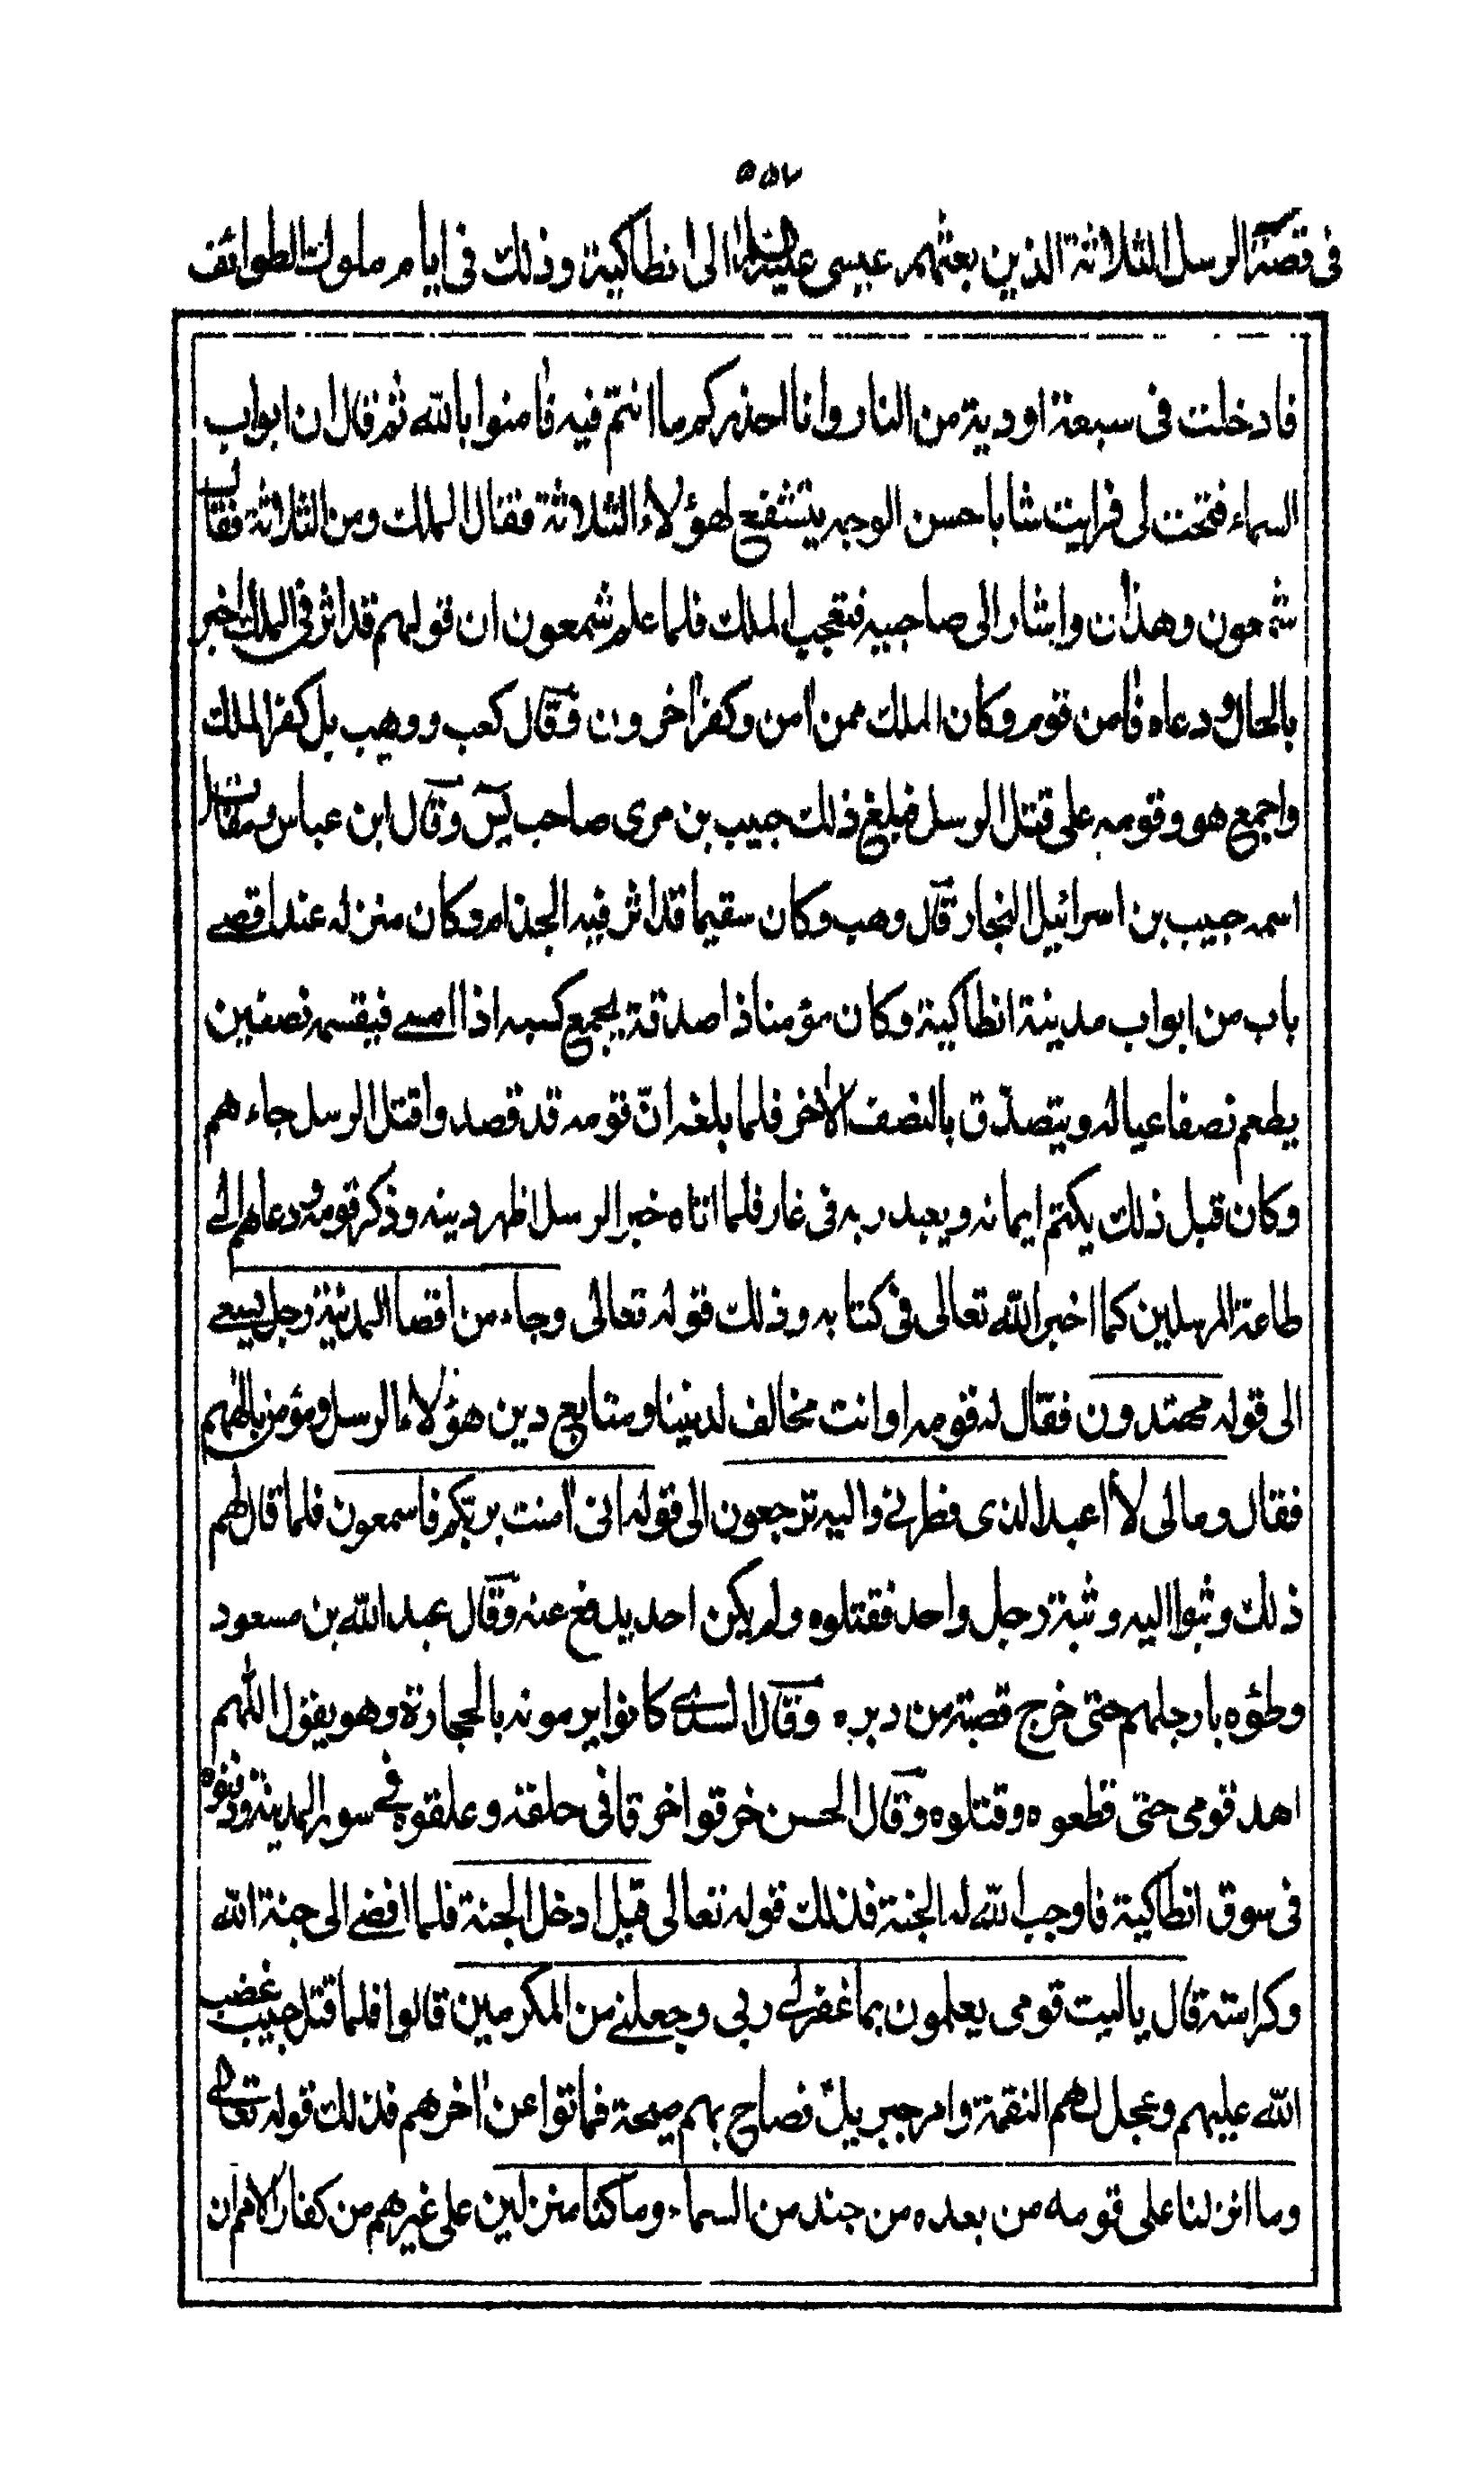 ٥٥٧
فى قصة الرسل الثلاثة الذين بعثهم عيسى عليه السلام الى انطاكية وذلك فى ايام ملوك الطوائف
فادخلت فى سبعة اودية من النار وانا احذركم ما انتم فيه فآمنوا بالله ثم قال ان ابواب
السماء فتحت لى فرايت شابا حسن الوجه يتشفع لهؤلاء الثلاثة فقال الملك ومن الثلاثة فقال
شمعون وهذان واشار الى صاحبيه فتعجب الملك فلما علم شمعون ان قولهم قد اثر فى الملك اخبر
بالحال ودعاه فآمن قوم وكان الملك ممن آمن وكفر آخرون وقال كعب ووهب بل كفر الملك
واجمع هو وقومه على قتل الرسل فبلغ ذلك حبيب بن مرى صاحب يس وقال ابن عباس ومقاتل
اسمه حبيب بن اسرائيل النجار قال وهب وكان سقيما قد اثر فيه الجذام وكان منزله عند اقصے
باب من ابواب مدينة انطاكية وكان مؤمنا ذا صدقة يجمع كسبه اذا امسے فيقسمه نصفين
يطعم نصفا عياله ويتصدّق بالنصف الآخر فلما بلغه انّ قومه قد قصدوا قتل الرسل جاءهم
وكان قبل ذلك يكتم ايمانه ويعبد ربه فى غار فلما اتاه خبر الرسل اظهر دينه وذكر قومه ودعاهم الے
طاعة المرسلين كما اخبر الله تعالى فى كتابه وذلك قوله تعالى وجاء من اقصا المدينة رجل يسعے
الى قوله مهتدون فقال له قومه اوانت مخالف لديننا ومتابع دين هؤلاء الرسل ومؤمن بالههم
فقال ومالى لا اعبد الذى فطرنے واليه ترجعون الى قوله انى آمنت بربكم فاسمعون فلما قال لهم
ذلك وثبوا اليه وثبة رجل واحد فقتلوه ولم يكن احد يدفع عنه وقال عبد الله بن مسعود
وطؤه بارجلهم حتى خرج قصبته من دبره وقال السدے كانوا يرمونه بالحجارة وهو يقول اللهم
اهد قومى حتى قطعوه وقتلوه وقال الحسن خرقوا خرقا فى حلقه وعلقوه فے سور المدينة ودفنوه
فى سوق انطاكية فاوجب الله له الجنة فذلك قوله تعالى قيل ادخل الجنة فلما افضے الى جنة الله
وكرامته قال ياليت قومى يعلمون بما غفر لے ربى وجعلنے من المكرمين قالوا فلما قتل حبيب غضب
الله عليهم وعجل لهم النقمة وامر جبريل فصاح بهم صيحة فماتوا عن آخرهم فذلك قوله تعالے
وما انزلنا على قومه من بعده من جند من السماء وما كنا منزلين على غيرهم من كفار الامم ان